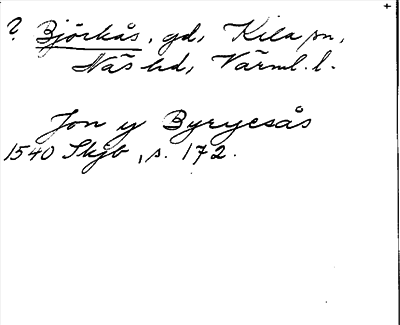 ? Björkås, gd, Kila sn,
Näs hd, Värml. l.
Jon y Byryesås
1540 Skjb, s. 172.